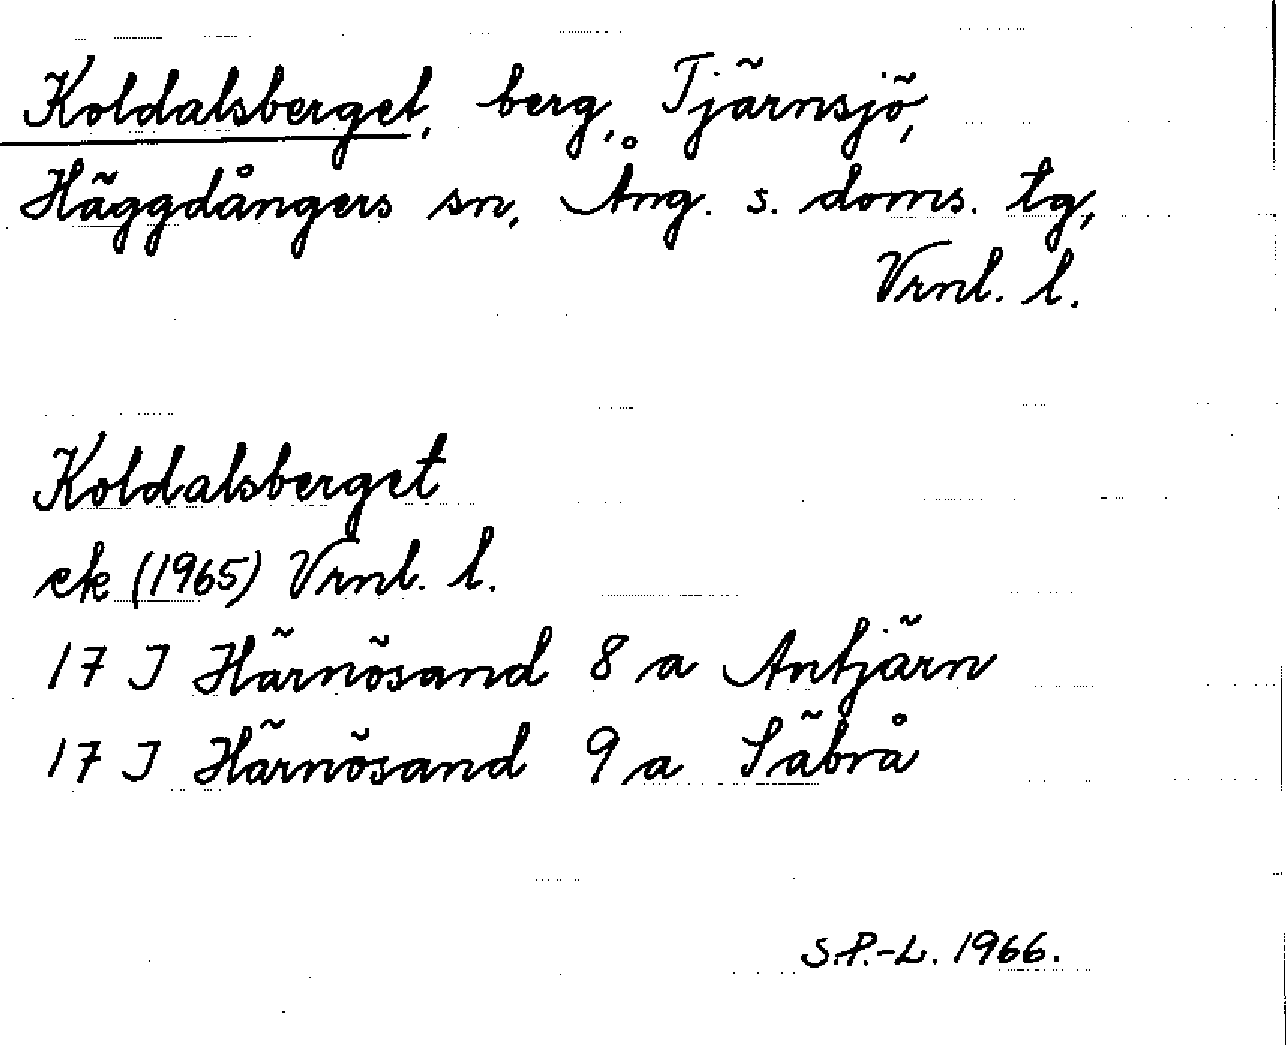 Koldalsberget, berg, Tjärnsjö,
Häggdångers sn, Ång. s. doms. tg,
Vrnl. l.
Koldalsberget
ek (1965) Vrnl. l.
17 I Härnösand 8 a Antjärn
17 I Härnösand 9 a Säbrå
S.P.-L. 1966.